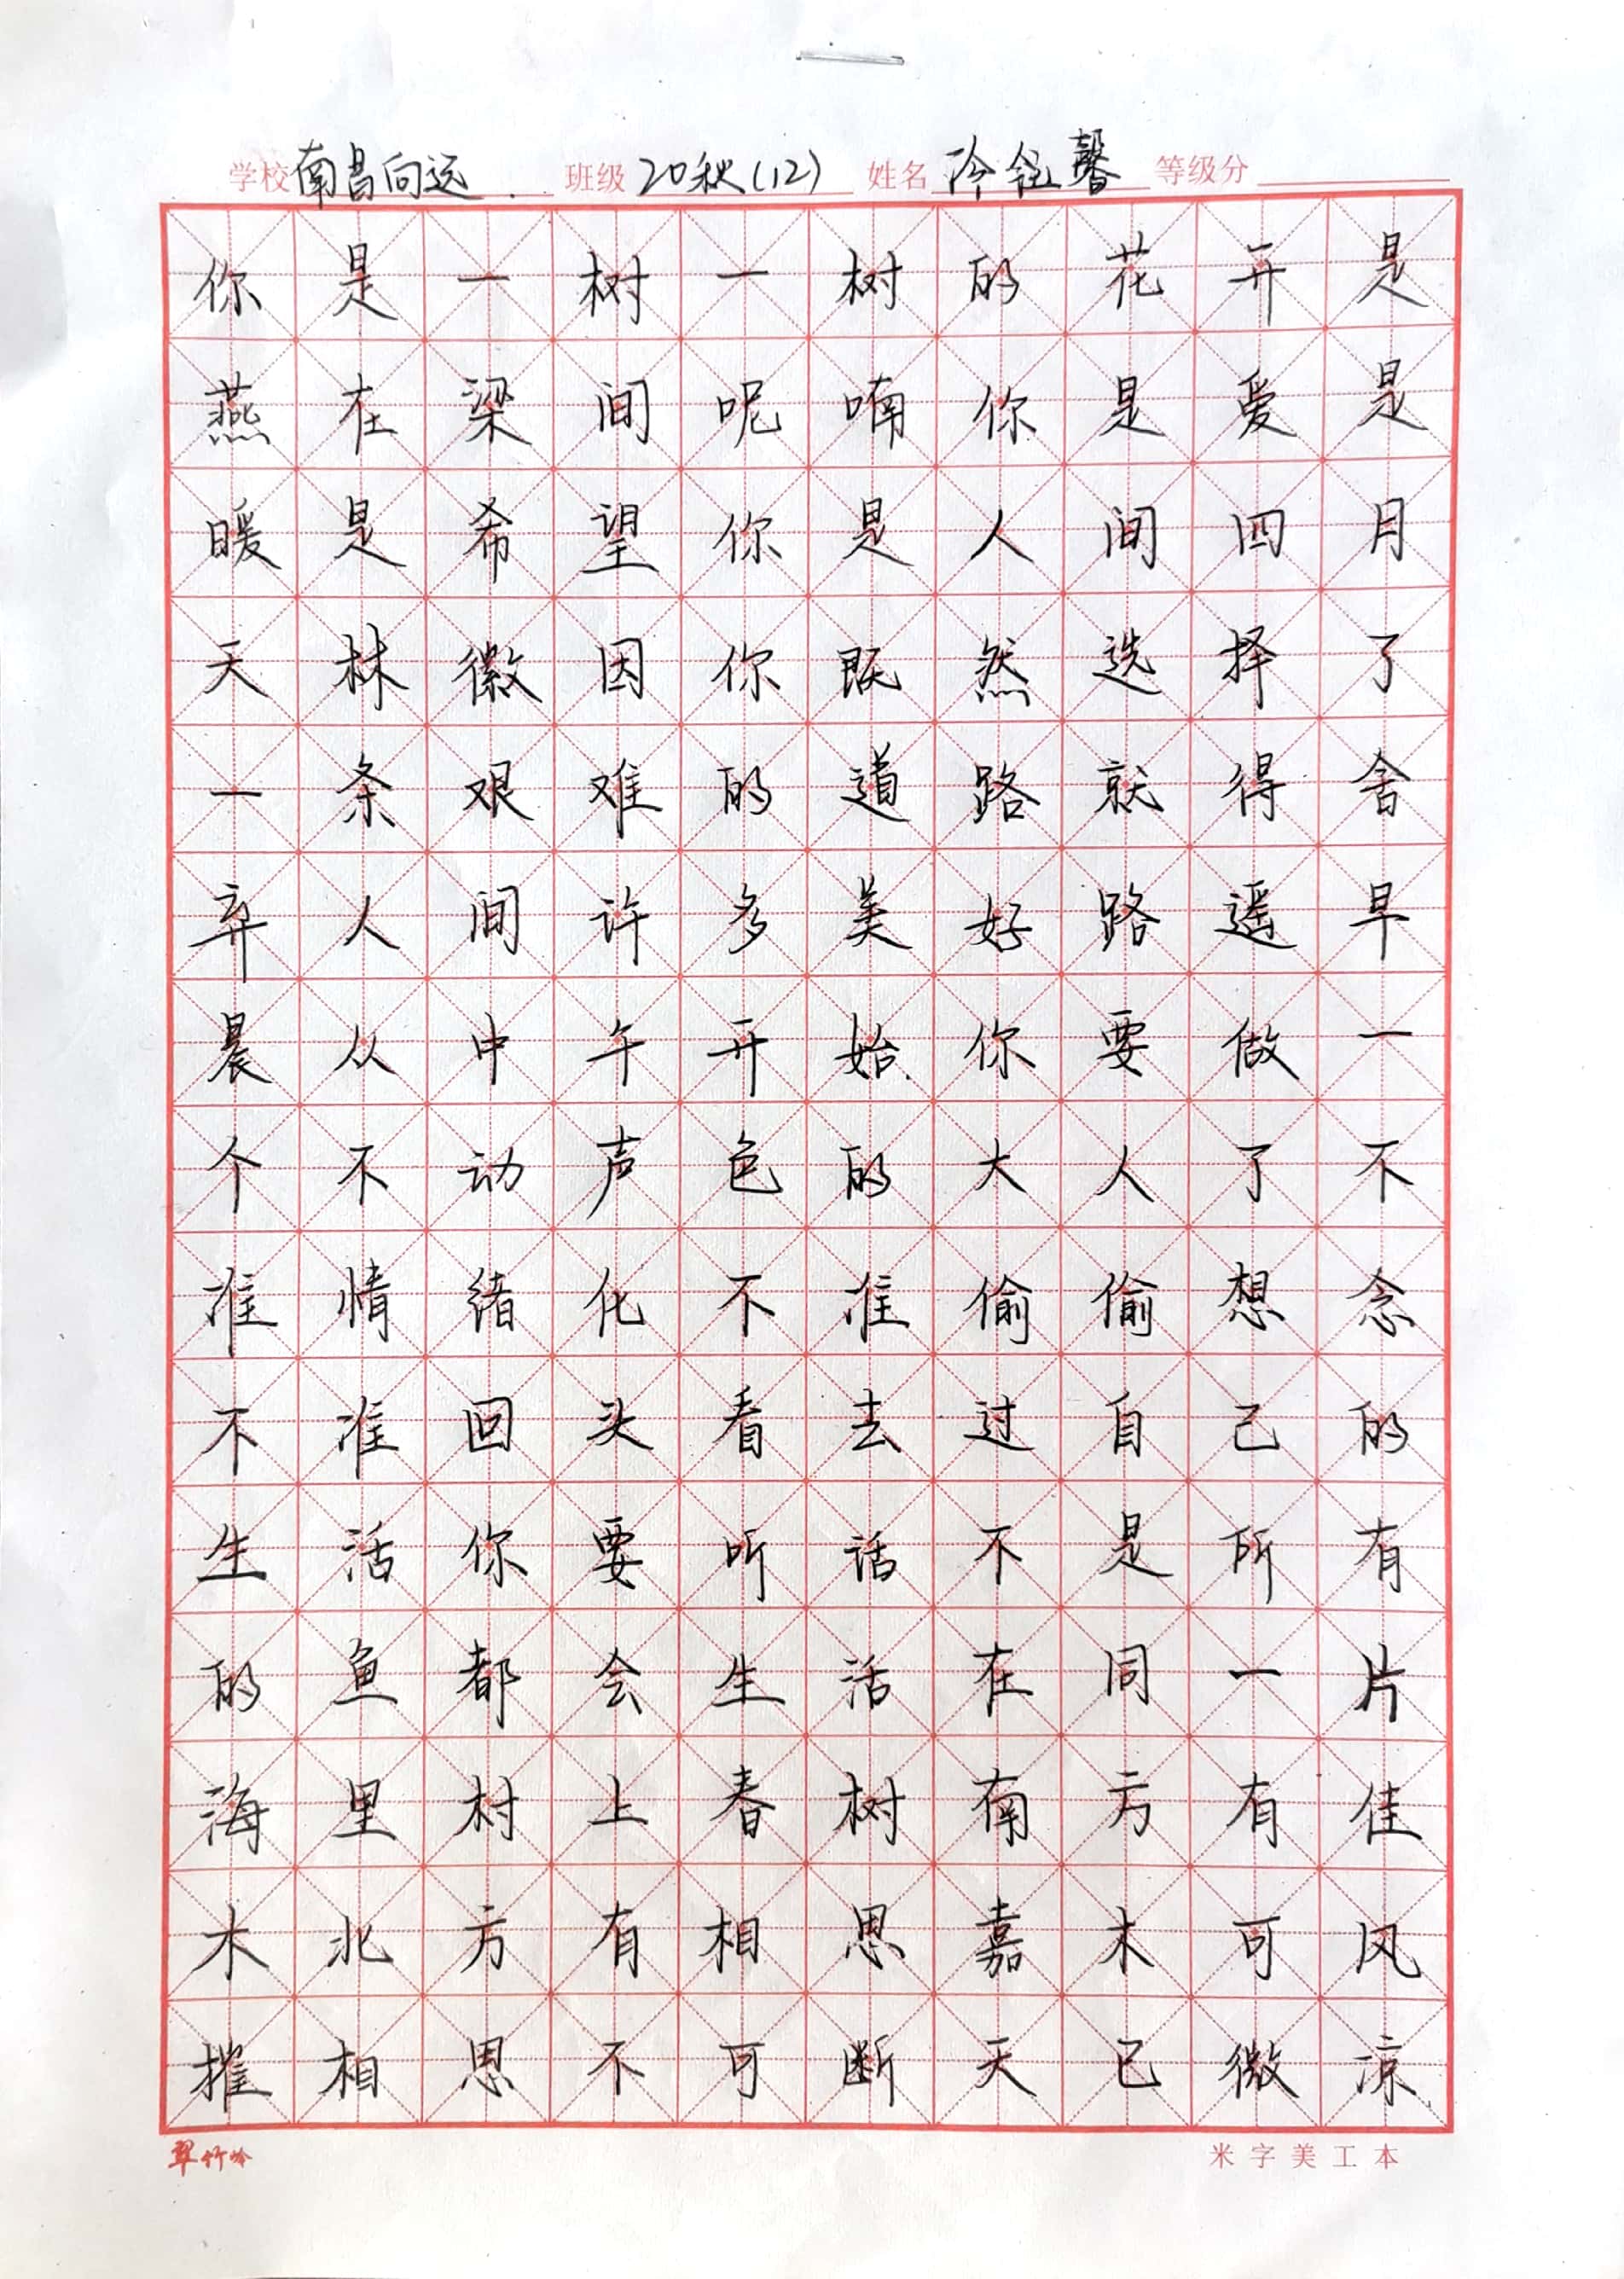 学校 南昌向远 班级 20秋(12) 姓名 冷钰馨 等级分
你是一树一树的花开是
燕在梁间呢喃你是爱是
暖是希望你是人间四月
天林徽因你既然选择了
一条艰难的道路就得舍
弃人间许多美好路遥早
晨从中午开始你要做一
个不动声色的大人了不
准情绪化不准偷偷想念
不准回头看去过自己的
生活你要听话不是所有
的鱼都会生活在同一片
海里村上春树南方有佳
木北方有相思嘉木可风
摧相思不可断天已微凉
翠竹吟 米字美工本